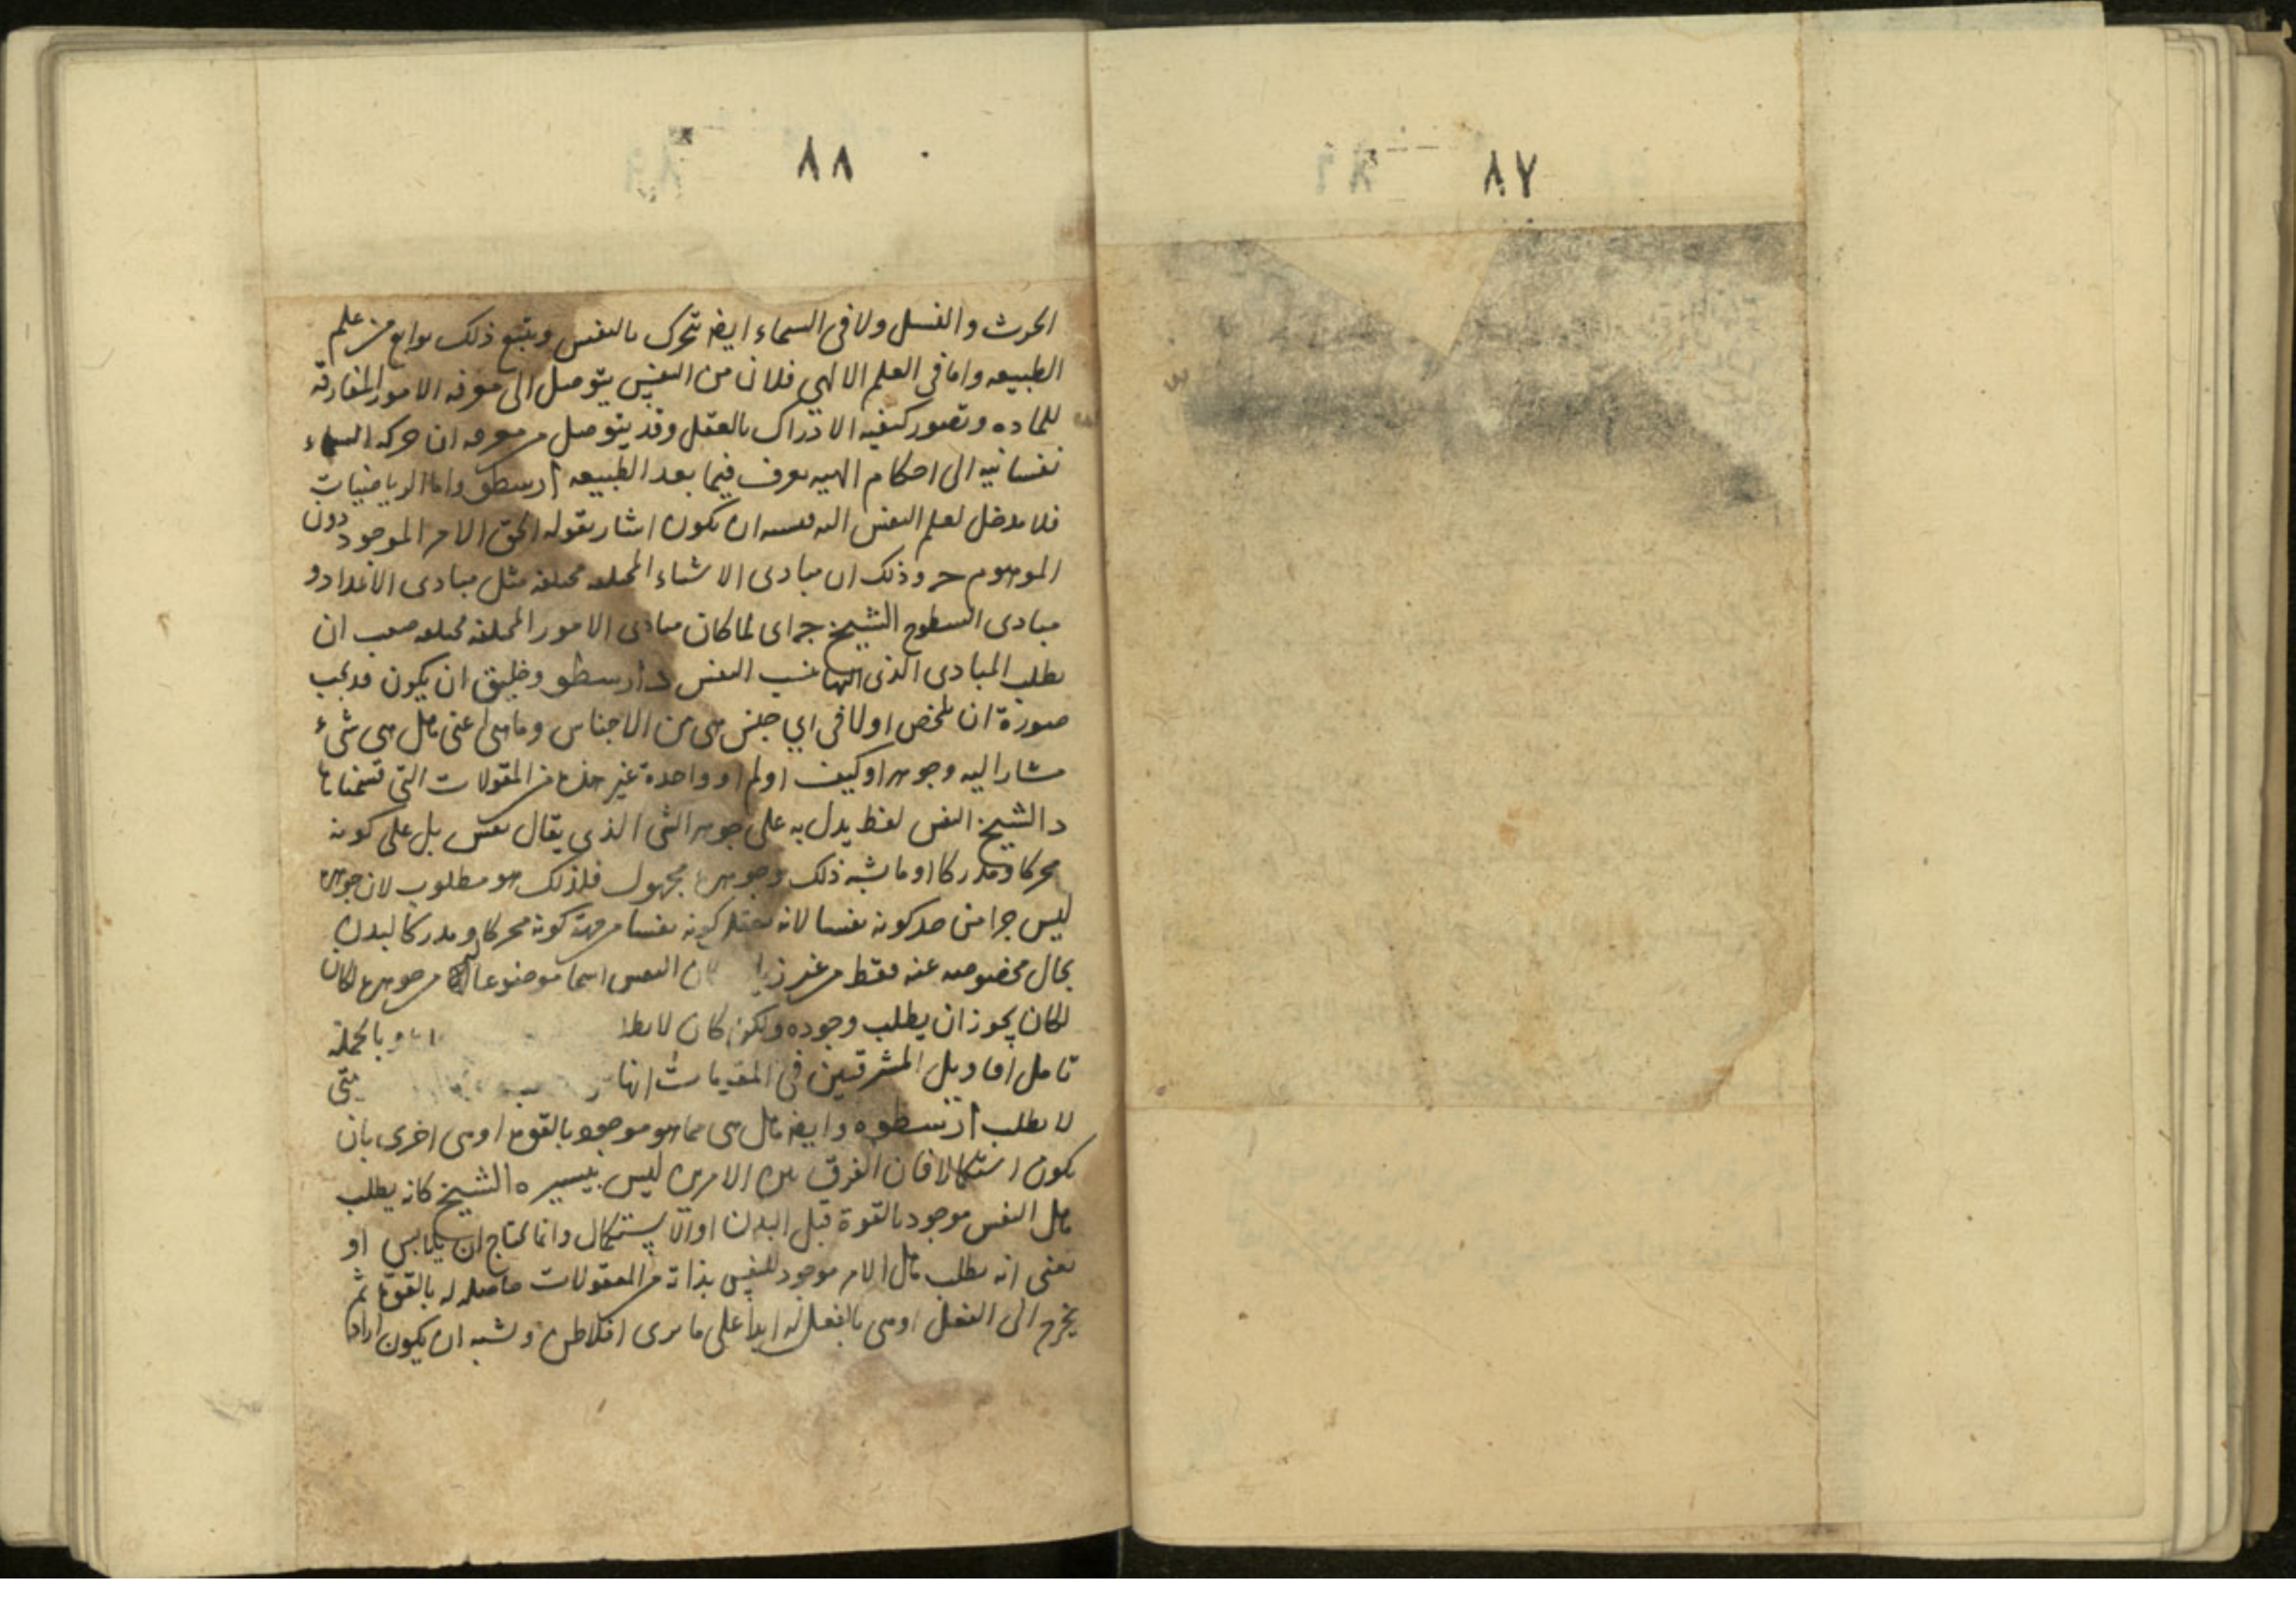 ٨٧
٨٨
الحرث والنسل ولا فى السماء ايضا تتحرك بالنفس ويتبع ذلك توابع من علم
الطبيعه واما فى العلم الالهي فلان من النفس يتوصل الى معرفه الامور المفارقه
للماده وتصور كيفيه الادراك بالعقل وقد يتوصل من معرفه ان حركه السماء
نفسانيه الى احكام الهيه تعرف فيما بعد الطبيعه ارسطو واما الرياضيات
فلا مدخل لعلم النفس اليه ان يكون اشار بقوله الحق الامر الموجود دون
الموهوم وذلك ان مبادى الاشياء المختلفه مختلفه مثل مبادى الاعداد و
مبادى السطوح الشيخ اى لما كان مبادى الامور المختلفه مختلفه صعب ان
يطلب المبادى الذى اليها النفس ارسطو وخليق ان يكون قد يجب
ضورة ان تلخص اولا فى اي جنس هى من الاجناس وما هى اعنى هل هى شىء
مشار اليه وجوهر او كيف او كم او واحدة غير هذه من المقولات التى قسمناها
د الشيخ النفس لفظ يدل به على جوهر الشى الذى يقال نفس بل على كونه
محركا ومدركا او ما يشبه ذلك وجوهره مجهول فلذلك هو مطلوب لان جوهره
ليس جزا من حد كونه نفسا لانه يعقل كونه نفسا من جهة كونه محركا ومدركا لبدن
بحال مخصوصه عنه فقط من غير كان النفس اسما موضوعا من جوهره لكان
لكان يجوز ان يطلب وجوده ولكن كان لا وبالجمله
تامل اقاويل المشرقيين فى انها حتى
لا يطلب ارسطو ه وايضا هل هى مما هو موجود بالقوه او هى اخرى بان
تكون استكمالا فان الفرق بين الامرين ليس بيسير ه الشيخ كانه يطلب
هل النفس موجود بالقوة قبل البدن او الاستكمال وانما تحتاج ان تلابس او
يعنى انه يطلب هل الامر موجود للنفس بذاته من المعقولات حاصله له بالقوة ثم
يخرج الى الفعل او هى بالفعل له ابدا على ما يرى افلاطن ويشبه ان يكون اراد